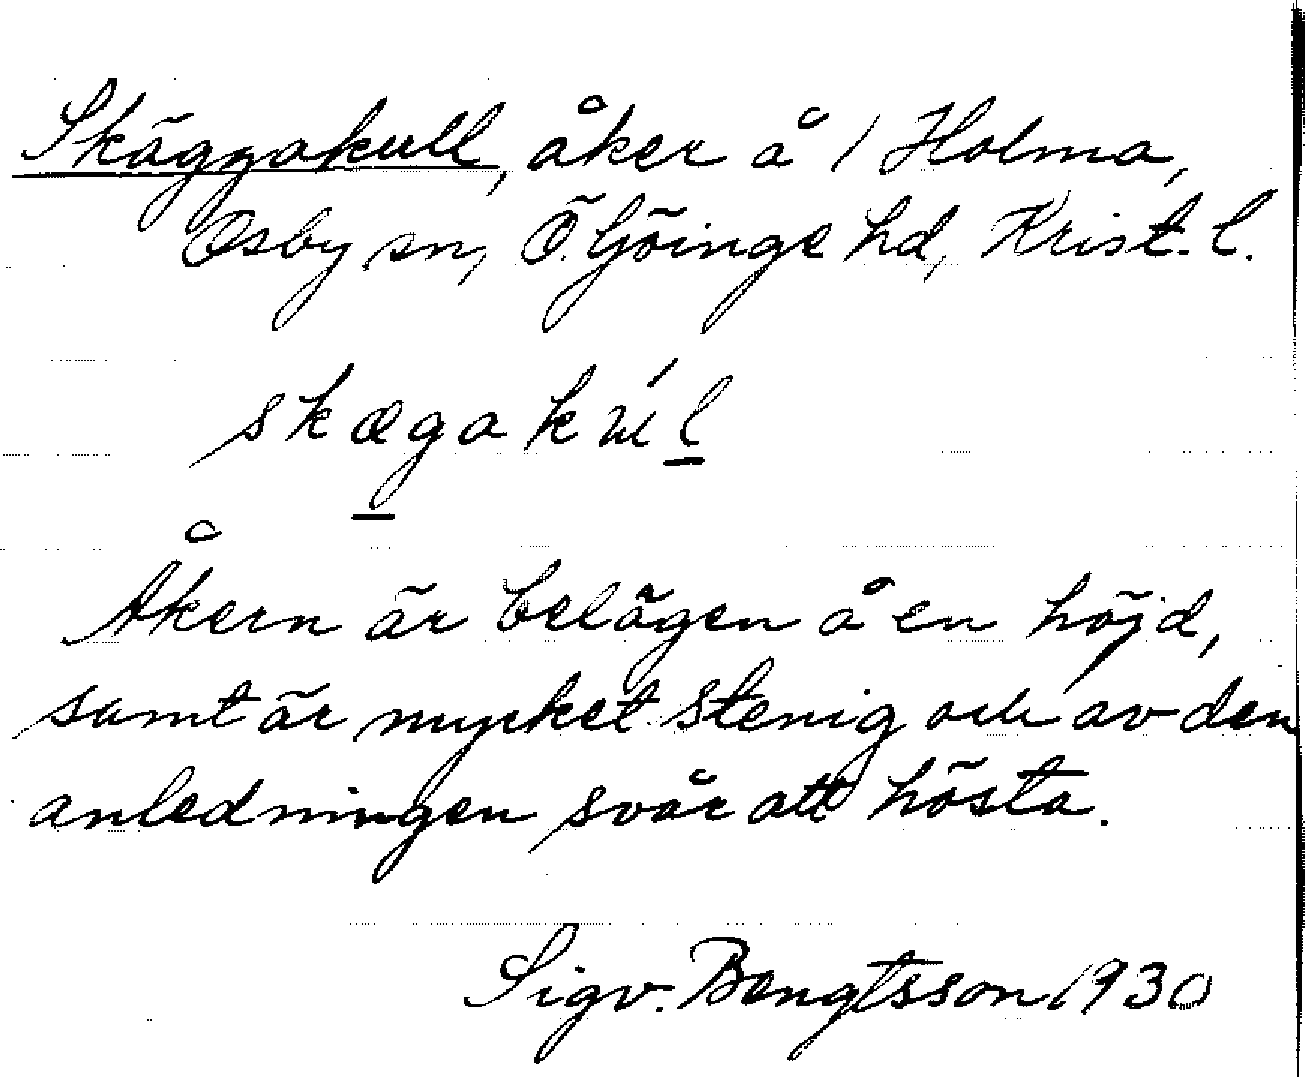 Skäggakull, åker å 1 Holma,
Osby sn, Ö. Göinge hd, Krist. l.
skægakul
Åkern är belägen å en höjd,
samt är mycket stenig och av den
anledningen svår att hösta.
Sigv. Bengtsson 1930